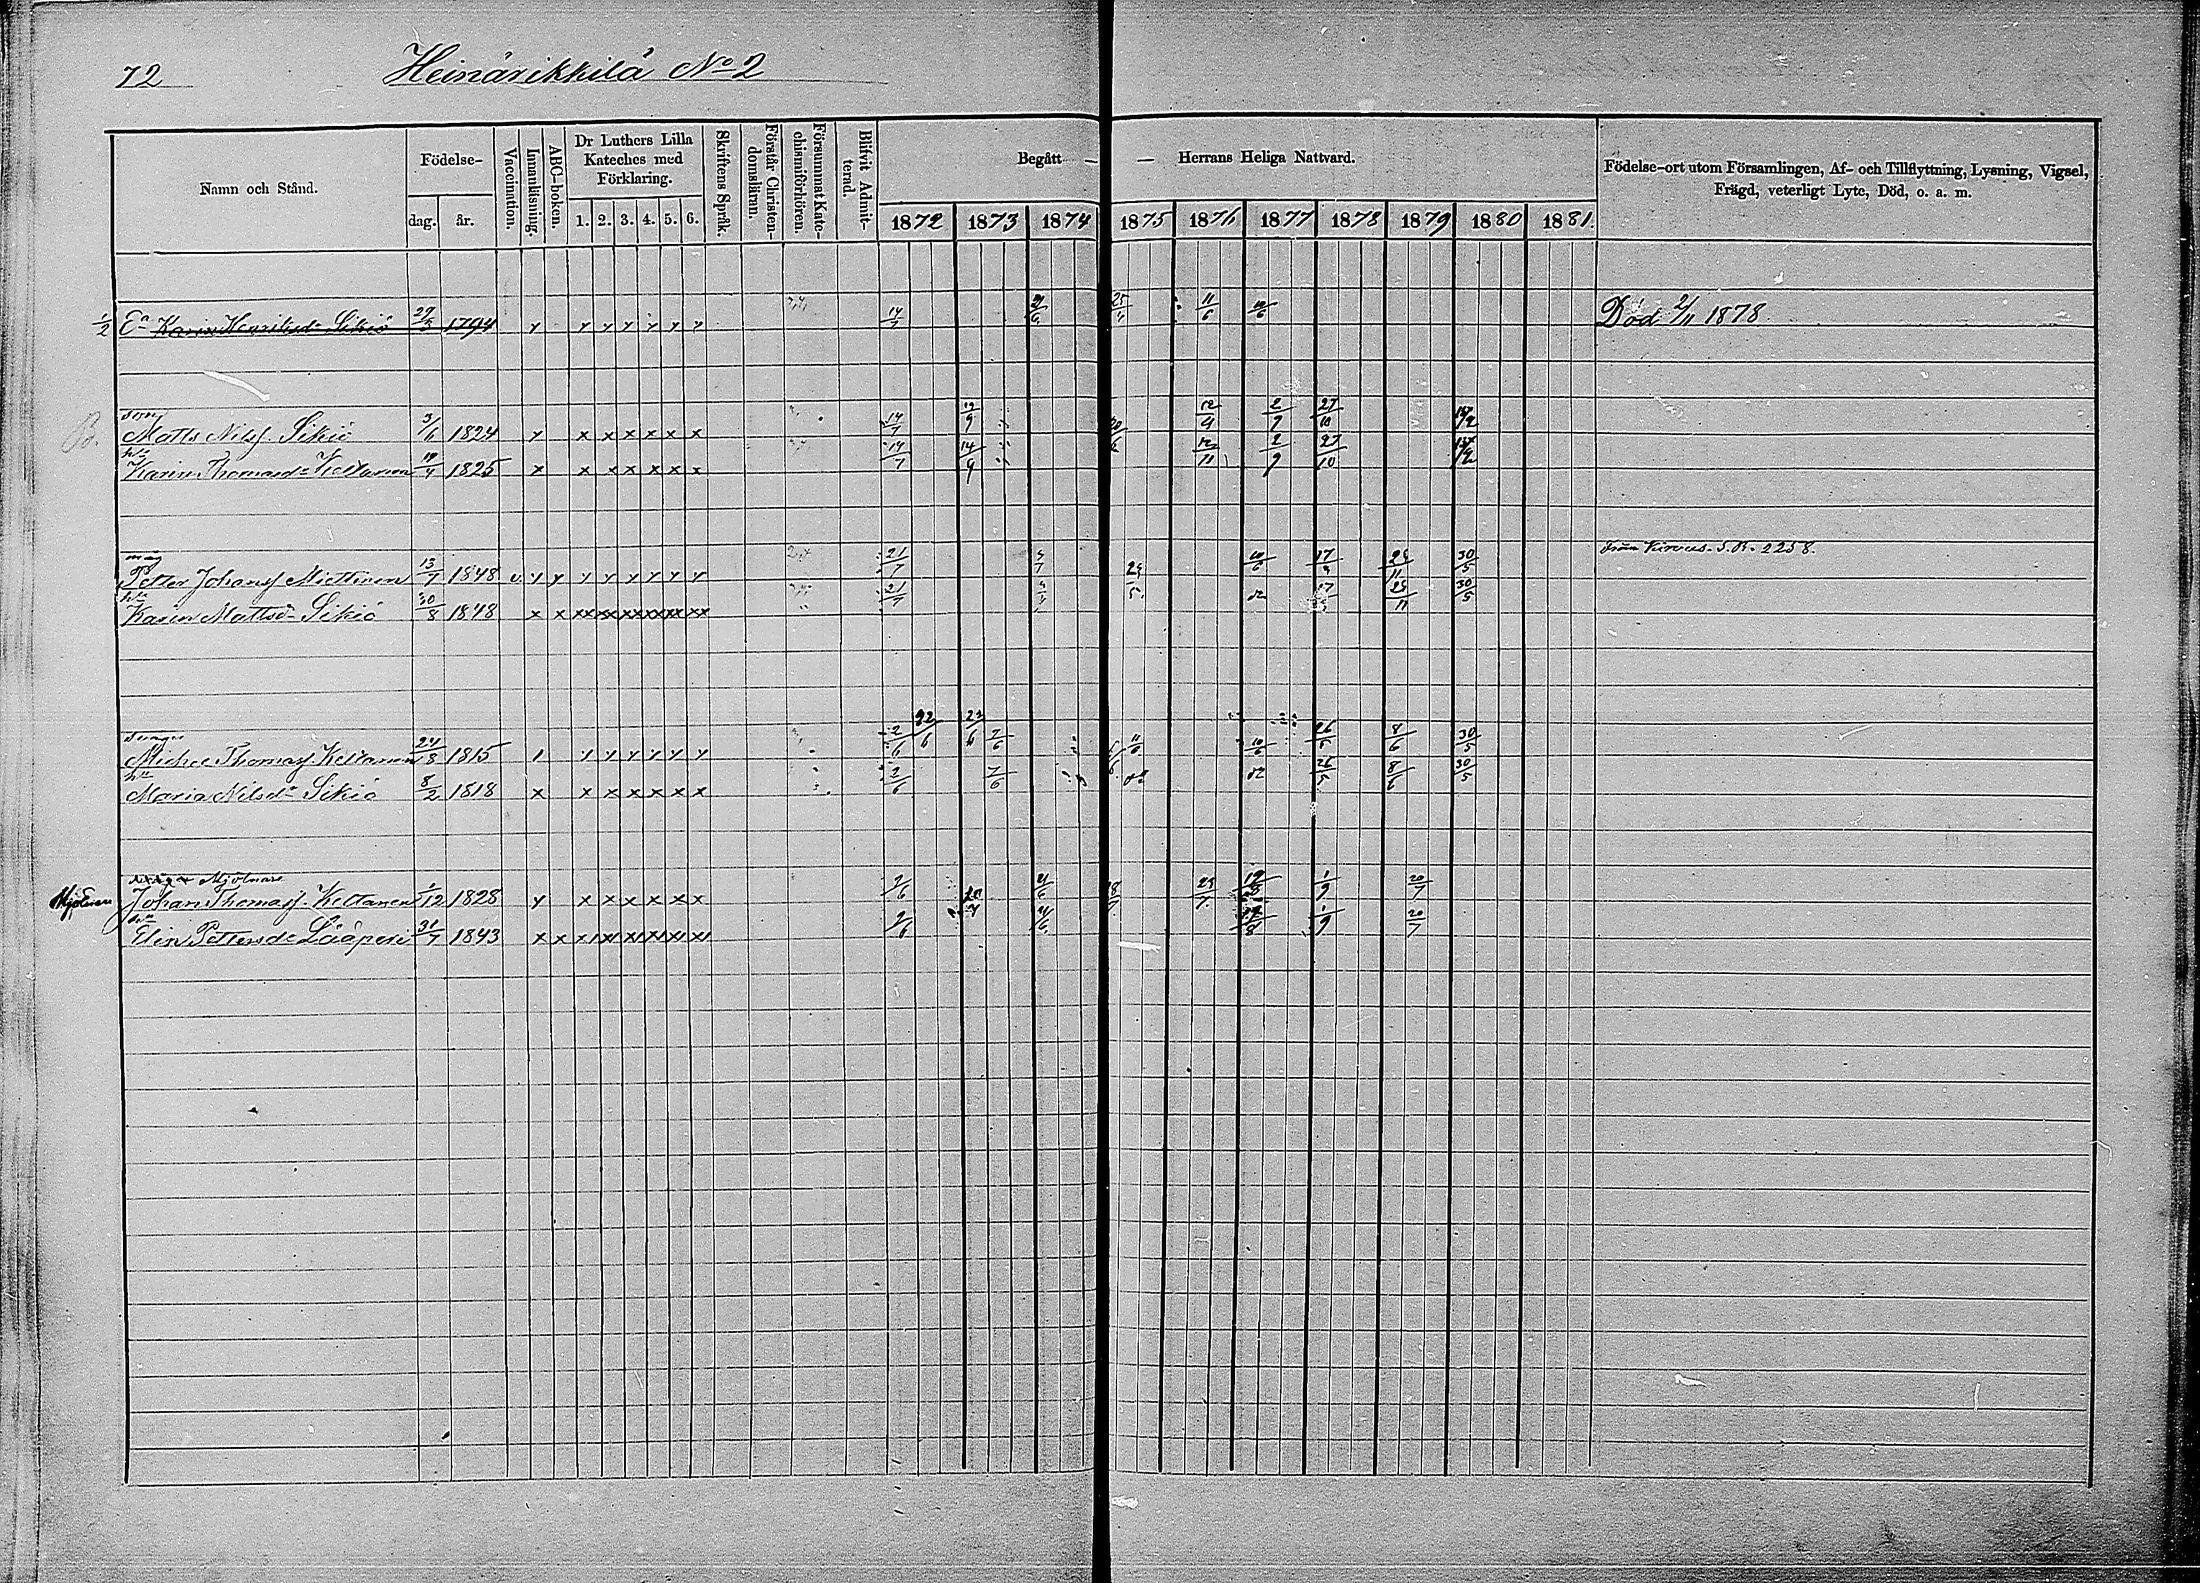 72 Heinärikkilä No 2
Namn och Stånd.
Födelse-
dag. år.
Vaccination.
Innanläsning.
ABC-boken.
Dr Luthers Lilla
Kateches med
Förklaring.
1. 2. 3. 4. 5. 6.
Skriftens Språk.
Förstår Christen-
domsläran.
Försummat Kate-
chismiförhören.
Blifvit Admit-
terad.
Begått — — Herrans Heliga Nattvard.
1872 1873 1874 1875 1876 1877 1878 1879 1880 1881.
Födelse-ort utom Församlingen, Af- och Tillflyttning, Lysning, Vigsel,
Frägd, veterligt Lyte, Död, o. a. m.
1/2 Ea Karin Henriksdr Sikiö 1794 14/7 11/6 Död 2/11 1878
son
B. Matts Nilss. Sikiö 3/6 1824 y x x x x x x 14/7 2/9 27/10
hu
Karin Thomasdr Keltanen 19/4 1825 x x x x x x x 14/7 14/9 12/11 2/9 27/10
måg
Petter Johanss Miettinen 13/7 1848 v y y y y y y y y 21/7 10/6 30/5 från Kirvus S.B. 2258.
hu
Karin Mattsdr Sikiö 30/8 1848 x x xx xx xx xx xx xx 21/7 30/5
Michel Thomass. Keltanen 24/8 1815 2/6 22/6 22/6 2/6 11/6 10/6 26/5 8/6 30/5
hu
Maria Nilsdr Sikiö 8/2 1818 x x x x x x x 2/6 2/6 26/5 8/6 30/5
Mjölnare
Mjölnare Johan Thomass. Keltanen 1/12 1828 y x x x x x x 2/6 21/6 1/9 20/7
hu
Elin Pettersdr Lääperi 31/7 1843 2/6 21/6 1/9 20/7